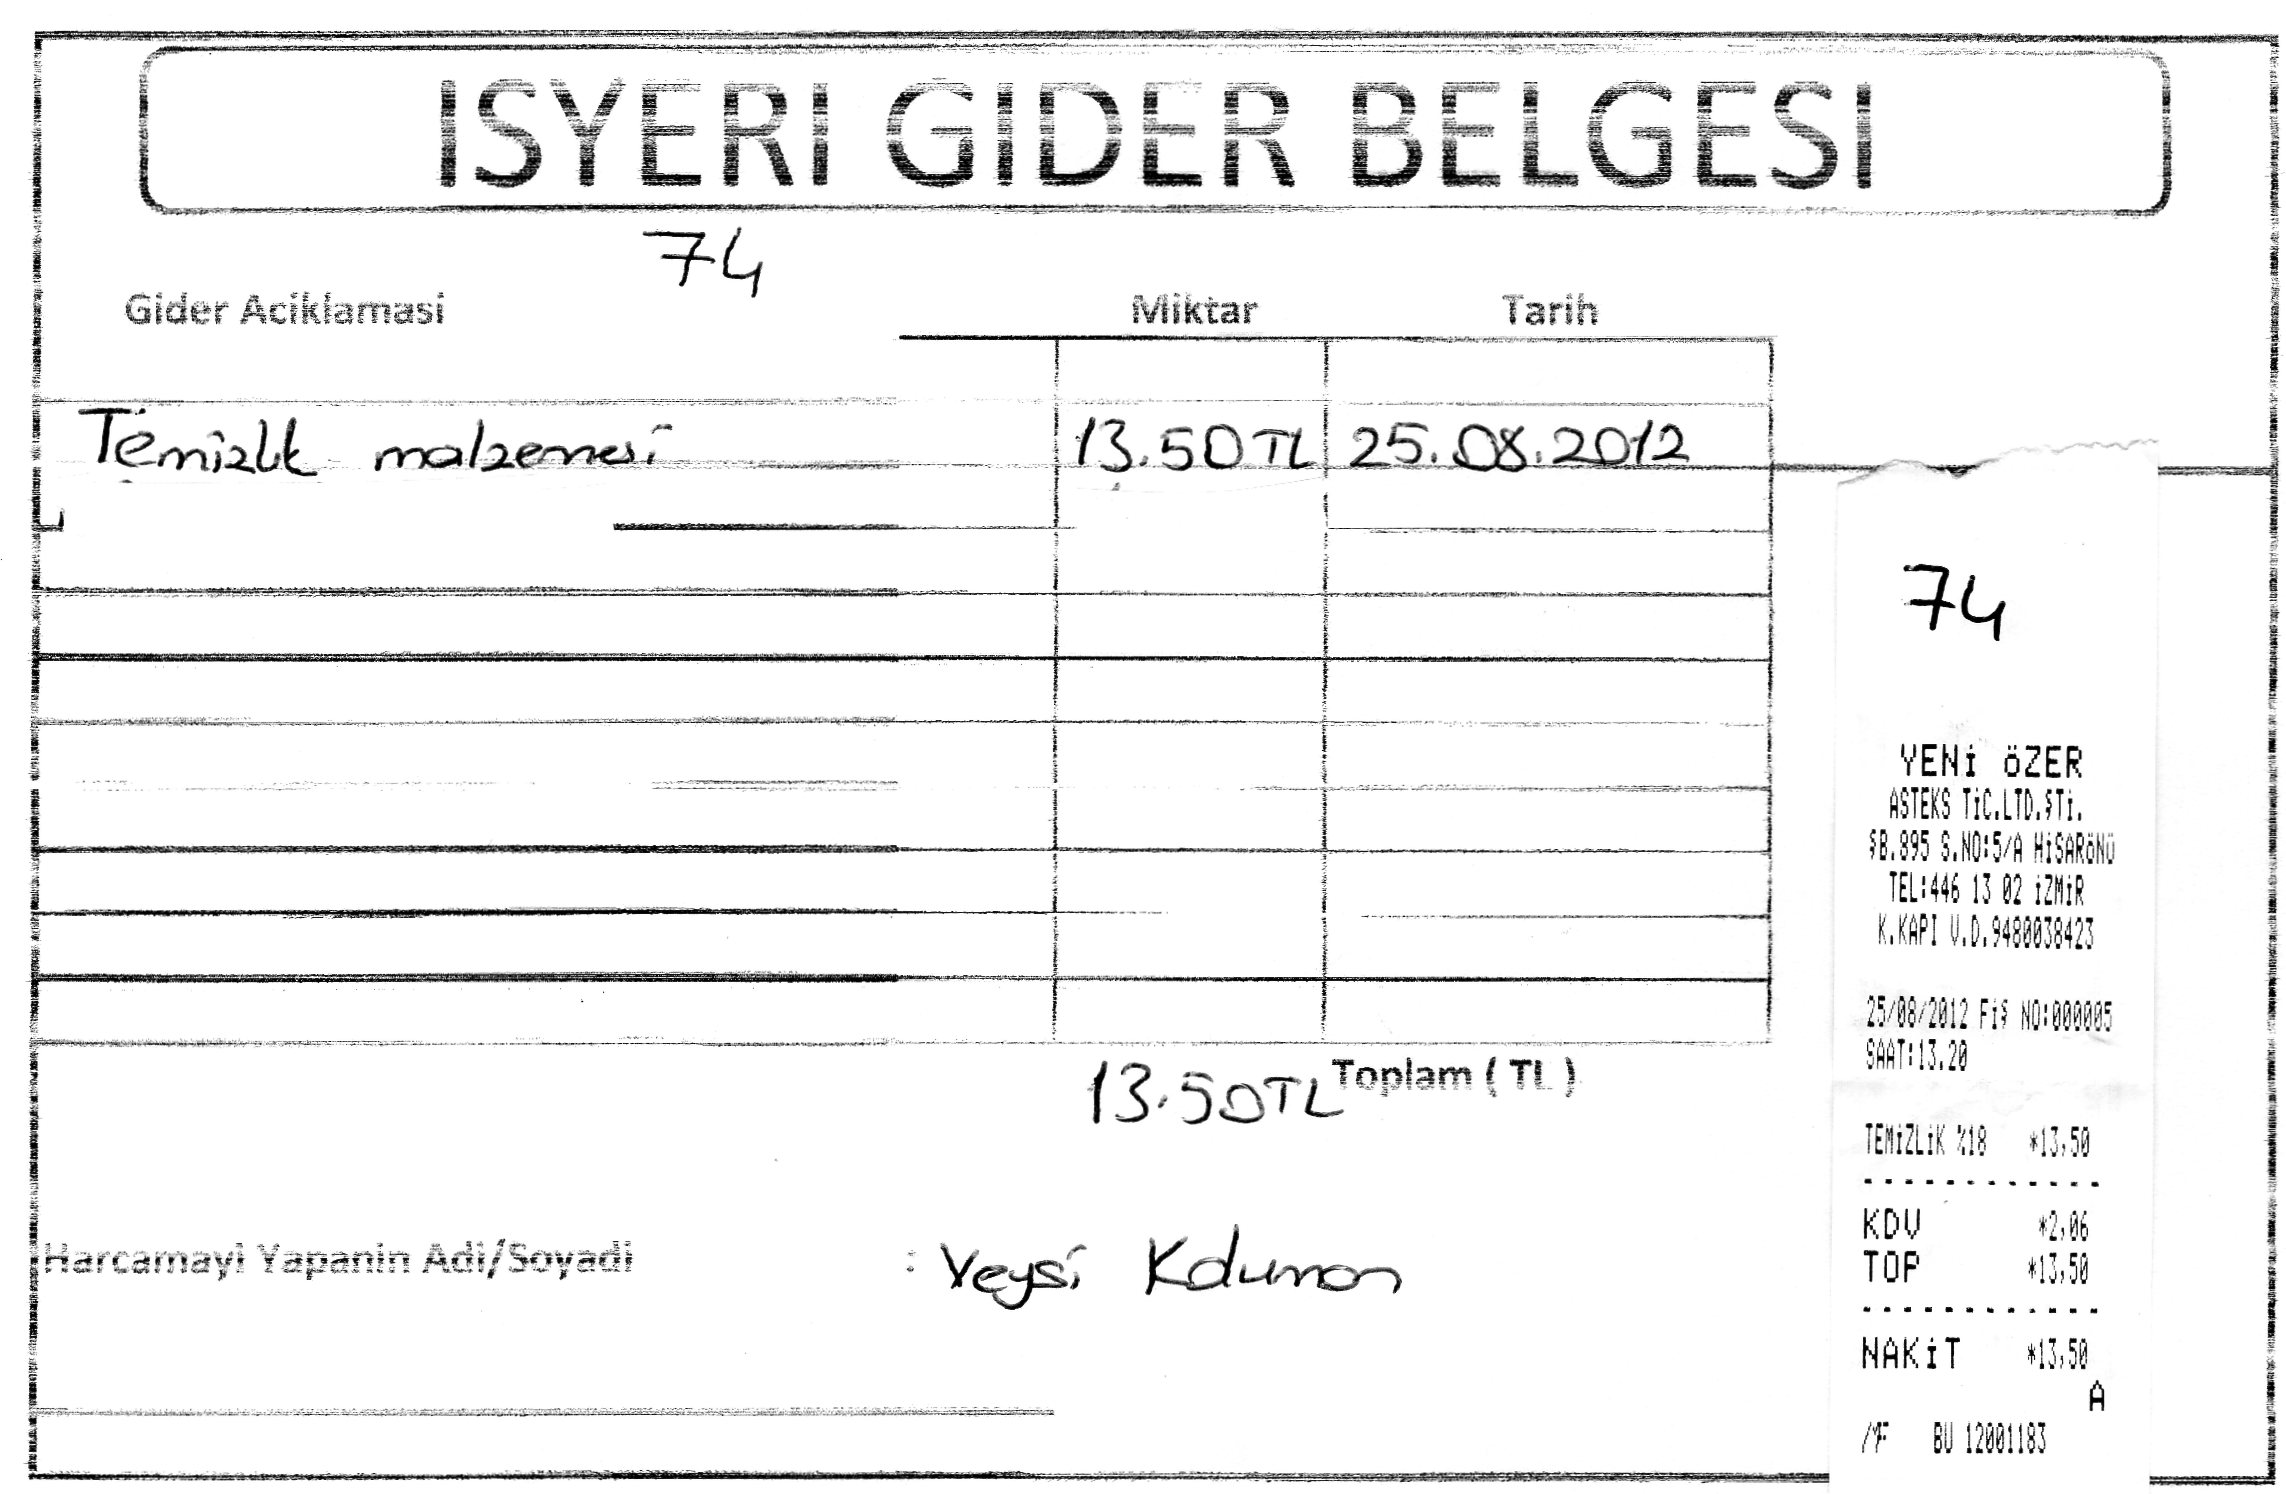 ISYERI GIDER BELGESI
74
Gider Aciklamasi Miktar Tarih
Temizlik malzemesi 13.50TL 25.08.2012
13.50TL Toplam ( TL )
Harcamayi Yapanin Adi/Soyadi : Veysi
74
YENİ ÖZER
ASTEKS TİC.LTD.ŞTİ.
ŞB.895 S.NO:5/A HİSARÖNÜ
TEL:446 13 02 İZMİR
K.KAPI V.D.9480038423
25/08/2012 FİŞ NO:000005
SAAT:13.20
TEMİZLİK %18 *13,50
KDV *2,06
TOP *13,50
NAKİT *13,50
A
MF BU 12001183